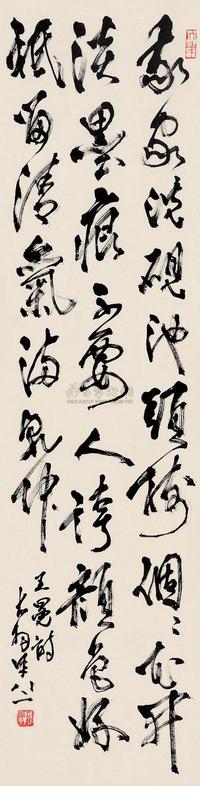 我家洗硯池頭樹個〻花开
淡墨痕不要人誇顏色好
祇留清氣滿乾坤
王冕詩
大羽年八一